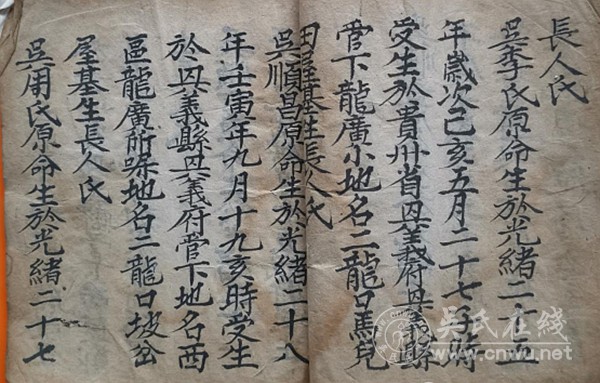 長人氏
吳李氏原命生於光緒二十五
年歲次己亥五月二十七子時
受生於貴州省興義府興義縣
管下龍廣小地名二龍口馬見
田屋基生長人氏
吳順昌原命生於光緒二十八
年壬寅年九月十九亥時受生
於興義縣興義府管下地名西
區龍廣所地名二龍口坡岔
屋基生長人氏
吳用氏原命生於光緒二十七
吳氏在线
www.cnwu.net